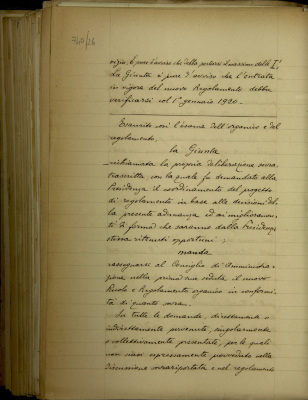 340/26
vizio, è pure d'avviso che detta pensione massima della L.
La Giunta è pure d'avviso che l'entrata
in vigore del nuovo Regolamento debba
verificarsi col 1° gennaio 1920.-
Esaurito così l'esame dell'organico e del
regolamento,
la Giunta
richiamata la propria deliberazione sovra
trascritta, con la quale fu demandato alla
Presidenza il coordinamento del progetto
di regolamento in base alle decisioni del
la presente adunanza ed ai miglioramen
ti di forma che saranno dalla Presidenza
stessa ritenuti opportuni;
manda
rassegnarsi al Consiglio di Amministra
zione nella prima sua seduta, il nuovo
Ruolo e Regolamento organico in conformi
tà di quanto sovra.
Su tutte le domande, direttamente o
indirettamente pervenute, singolarmente
o collettivamente presentate, per le quali
non siasi espressamente provveduto nella
discussione sovrariportata e nel regolamento